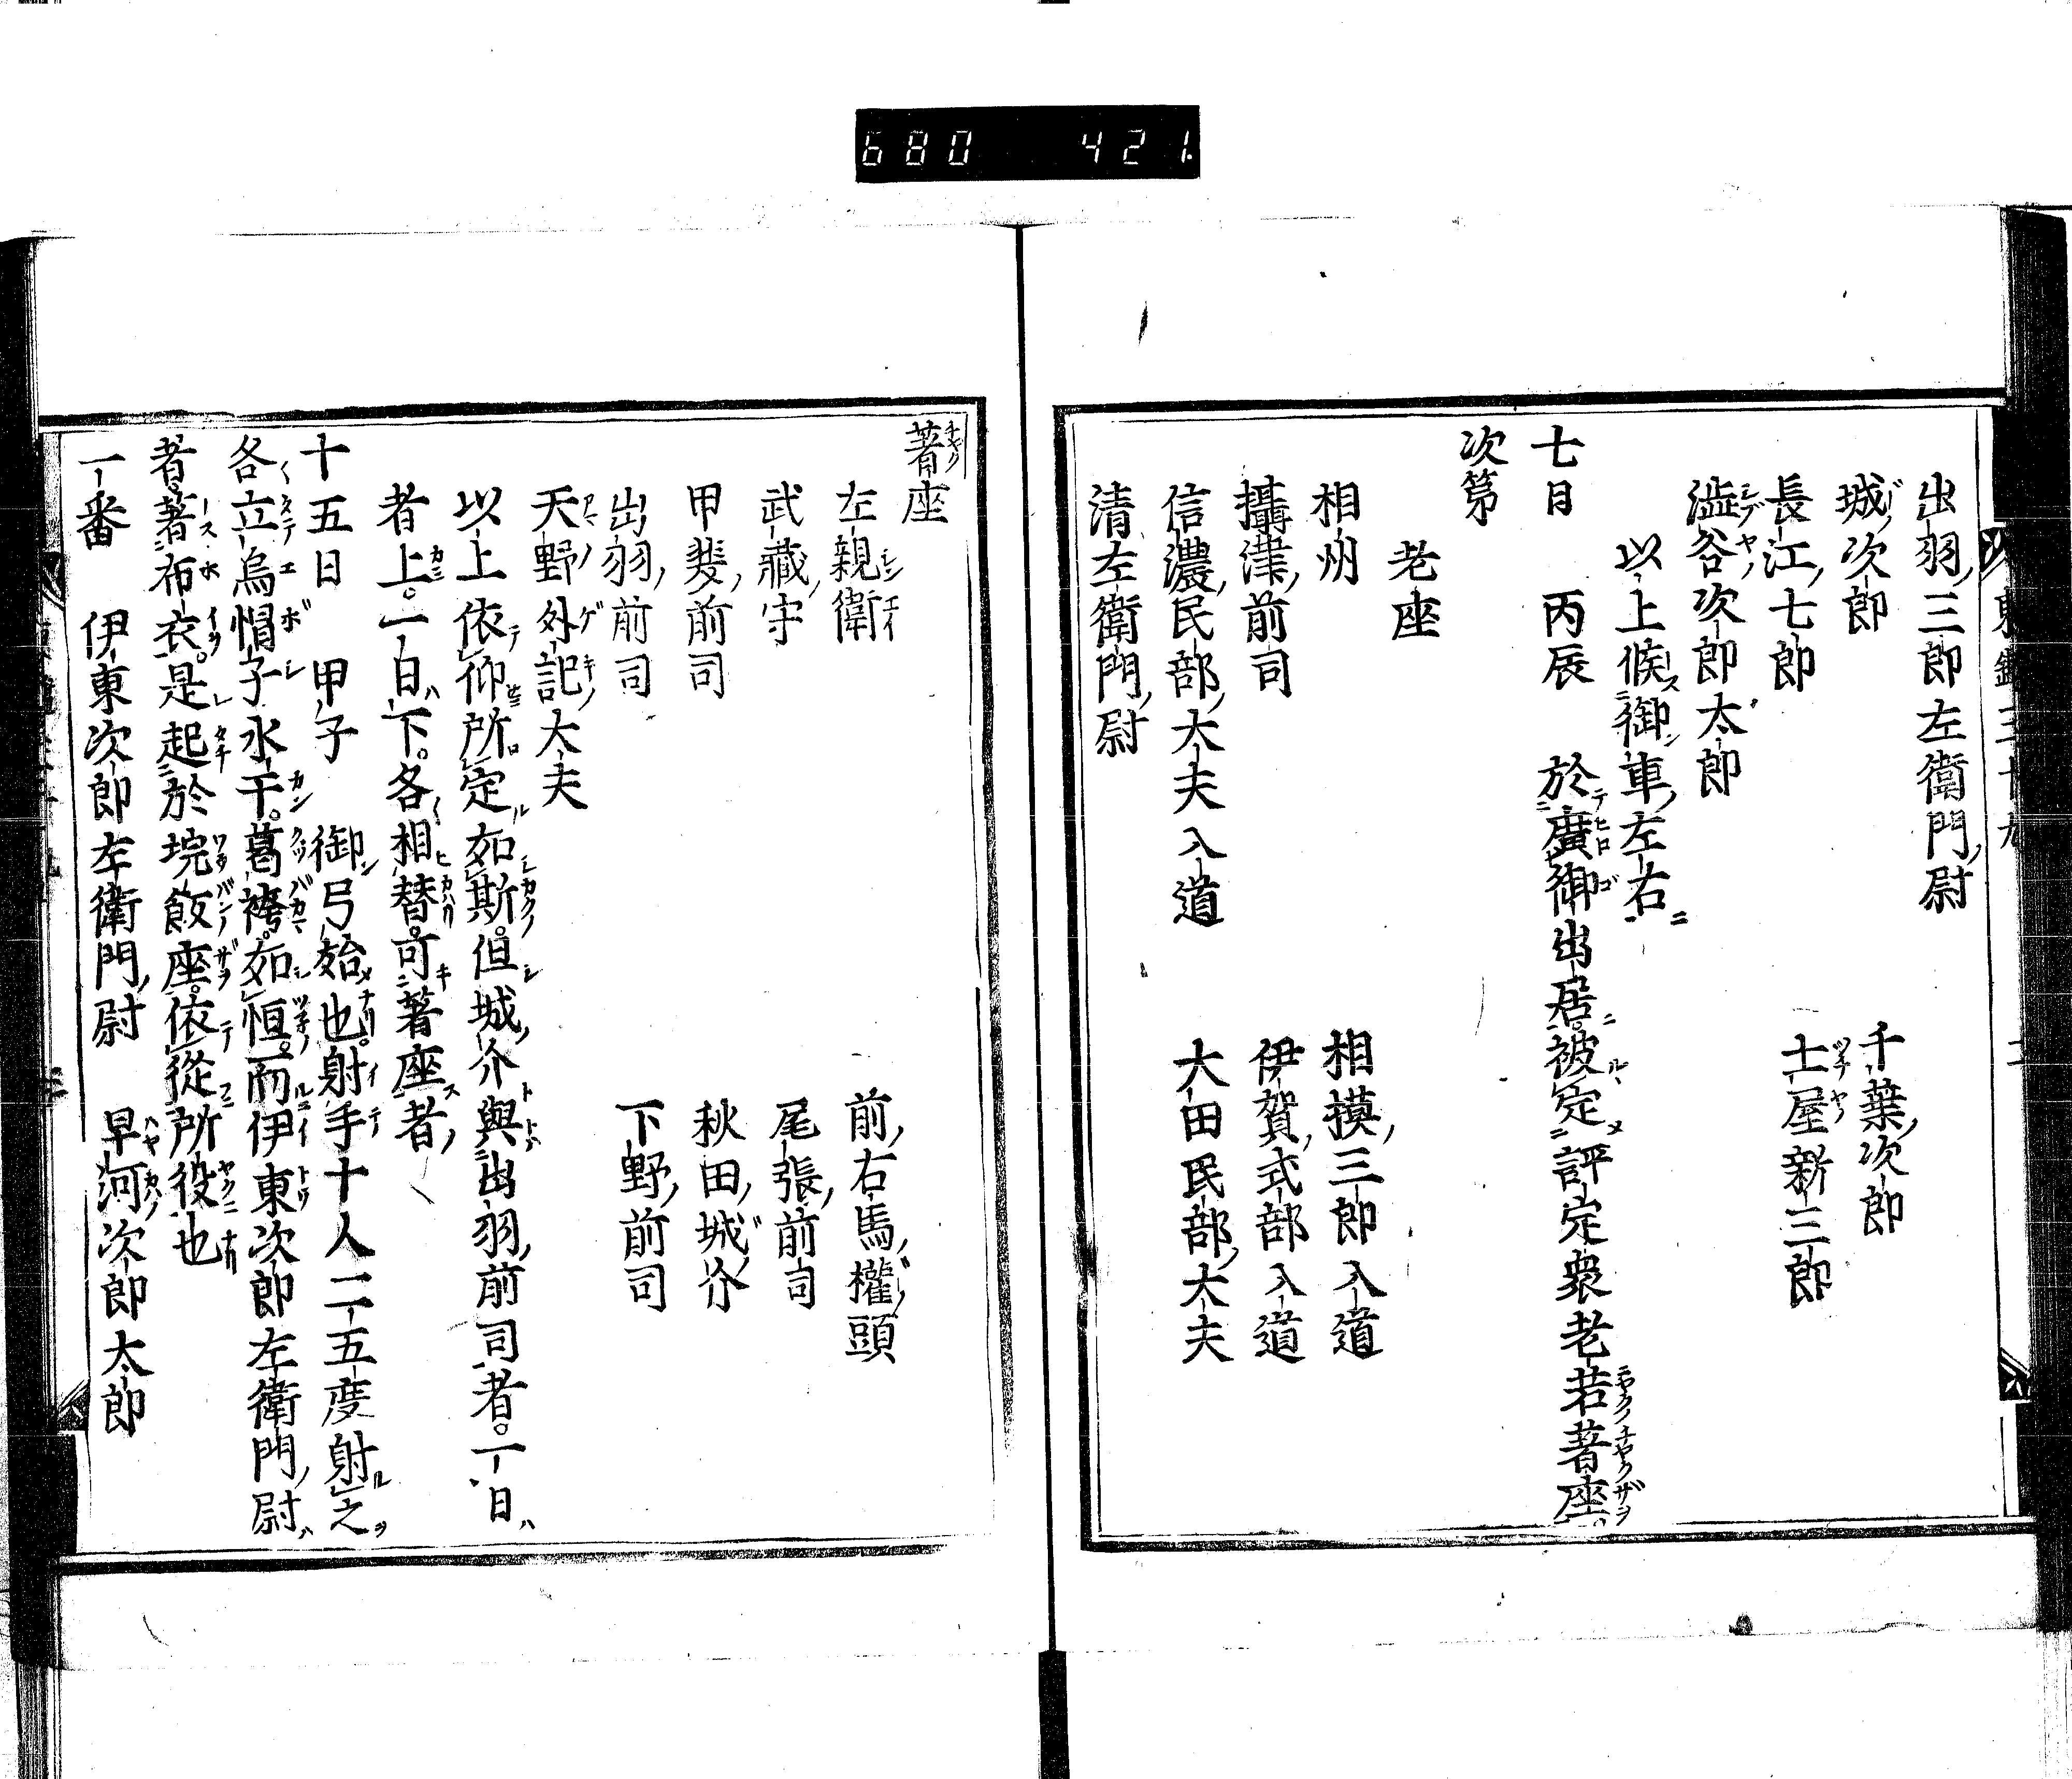 680 421.
出羽三郎左衛門尉
城次郎　千葉次郎
長江七郎　土屋新三郎
澁谷次郎太郎
以上候御車左右
七日　丙辰　於廣御出居被定評定衆老若著座
次第
老座
相州　相摸三郎入道
攝津前司　伊賀式部入道
信濃民部大夫入道　大田民部大夫
清左衛門尉
著座
左親衛　前右馬權頭
武藏守　尾張前司
甲斐前司　秋田城介
出羽前司　下野前司
天野外記大夫
以上依仰所定如斯。但城介與出羽前司者。一日
者上。一日下。各相替。可著座者
十五日　甲子　御弓始也。射手十人二五度射之
各立烏帽子水干。葛袴。如恒。而伊東次郎左衛門尉
者。著布衣。是起於埦飯座。依從所役也
一番　伊東次郎左衛門尉　早河次郎太郎